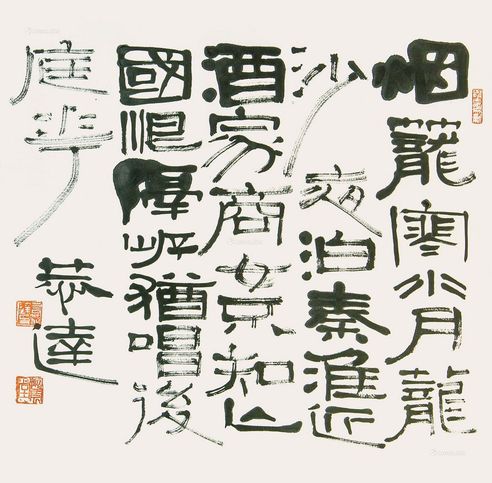 烟籠寒水月龍
沙夜泊秦淮近
酒家商女不知亡
國恨隔江猶唱後
庭花
恭達